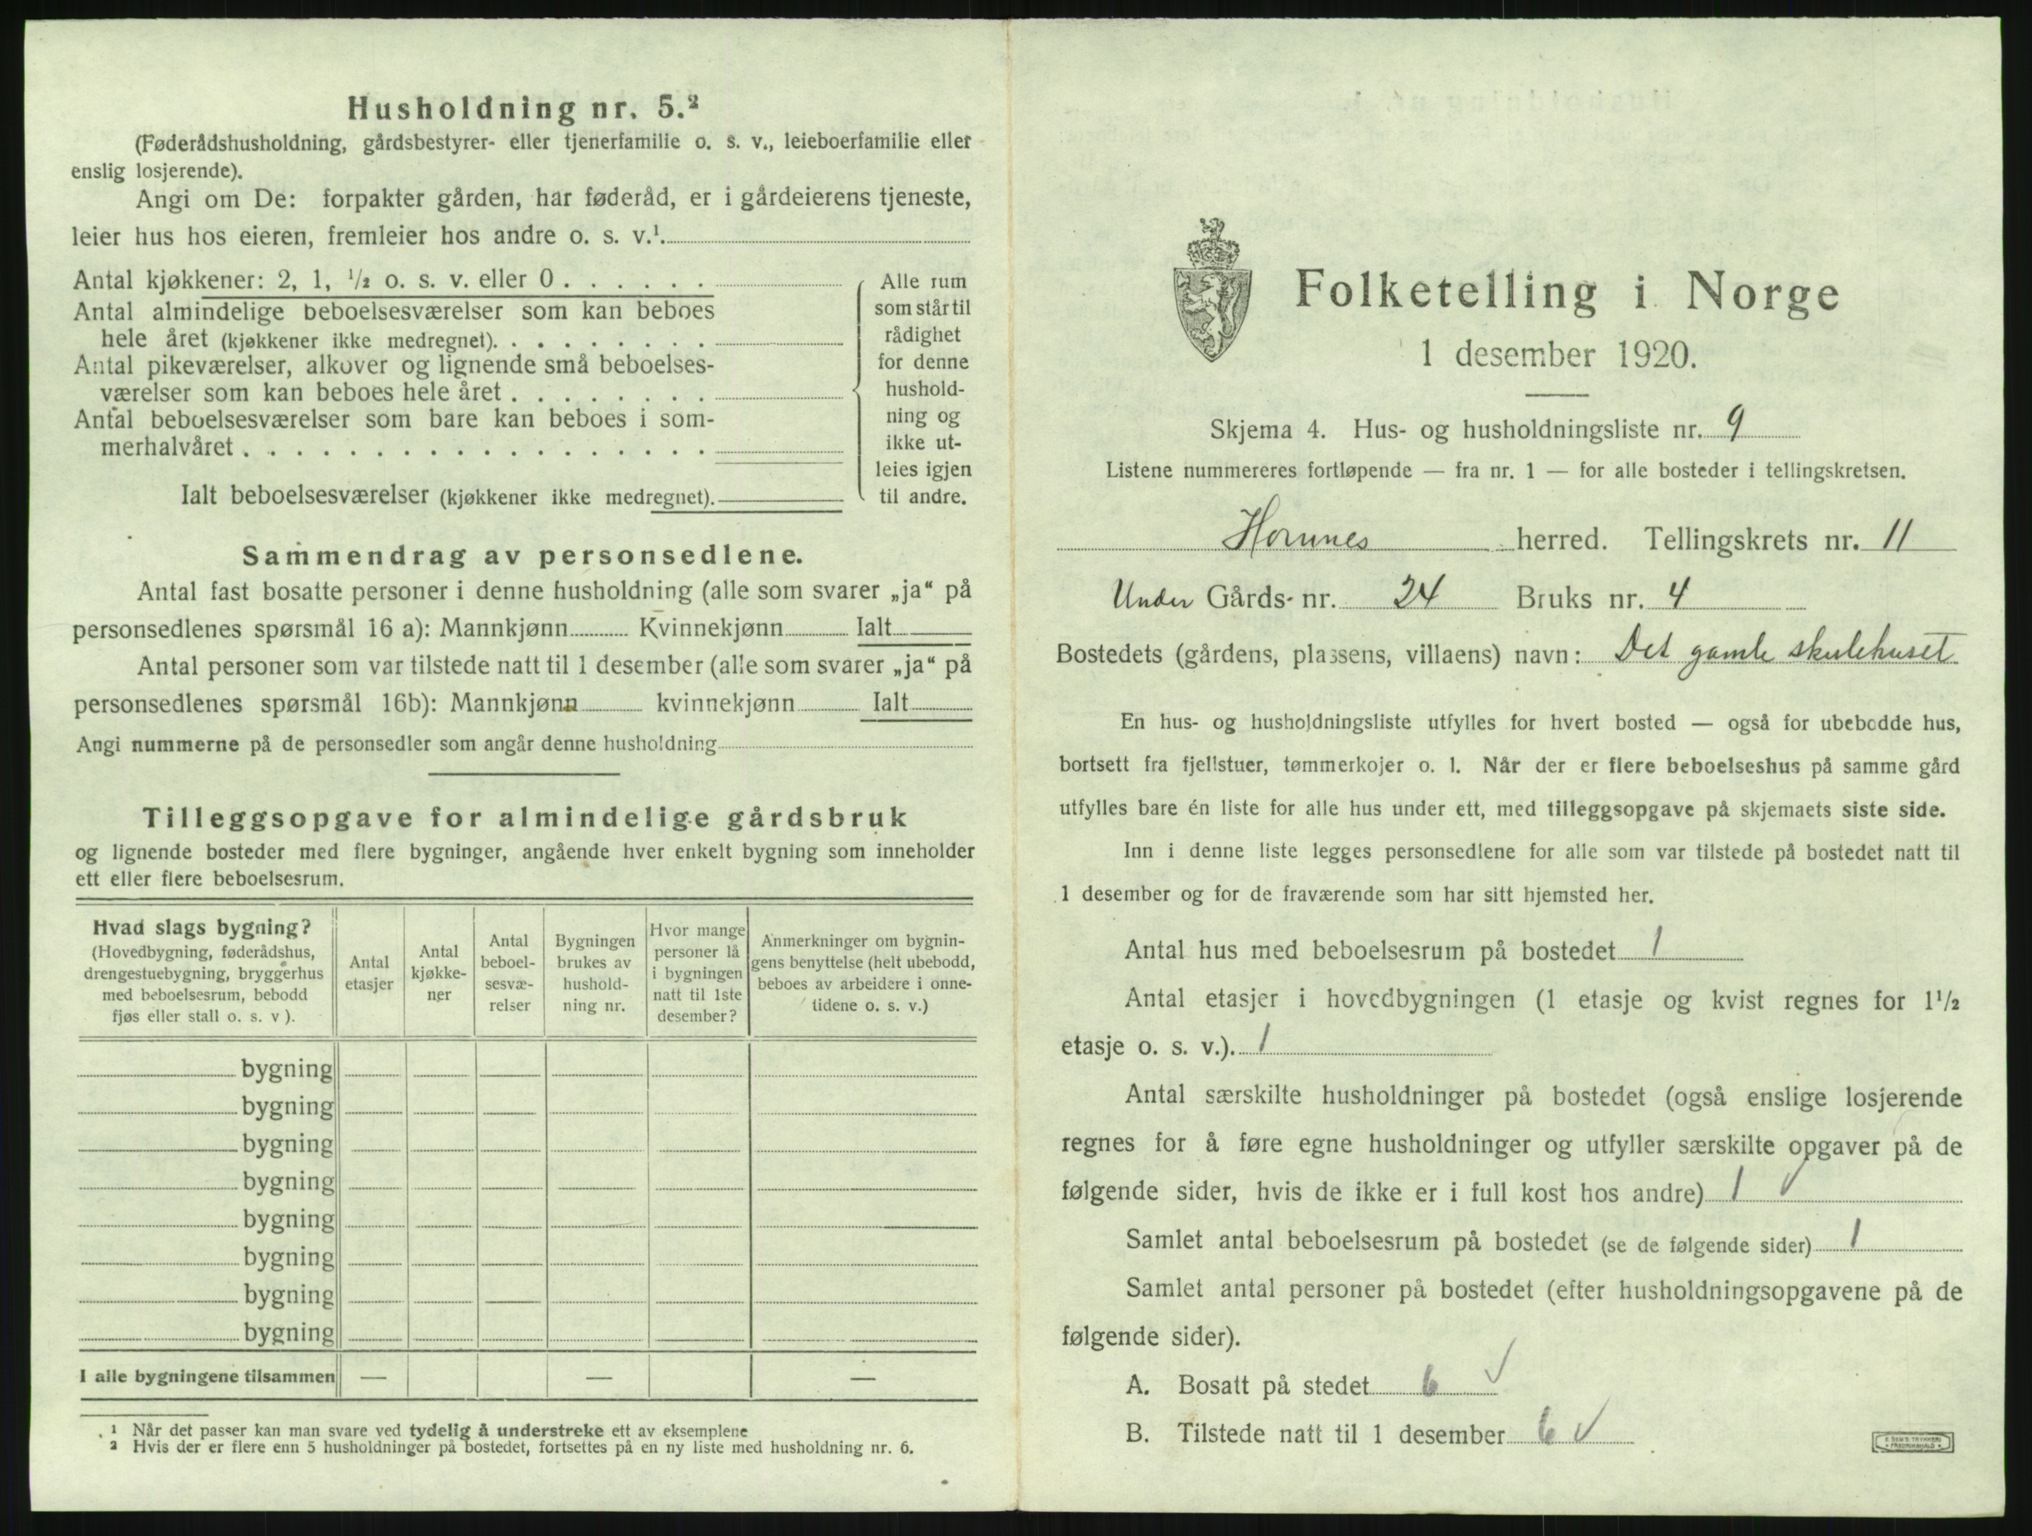 Husholdning nr. 5.²
(Føderådshusholdning, gårdsbestyrer- eller tjenerfamilie o. s. v., leieboerfamilie eller
enslig losjerende).
Angi om De: forpakter gården, har føderåd, er i gårdeierens tjeneste,
leier hus hos eieren, fremleier hos andre o. s. v.¹
Antal kjøkkener: 2, 1, ½ o. s. v. eller 0
Antal almindelige beboelsesværelser som kan beboes
hele året (kjøkkener ikke medregnet)
Antal pikeværelser, alkover og lignende små beboelses-
værelser som kan beboes hele året
Antal beboelsesværelser som bare kan beboes i som-
merhalvåret
Ialt beboelsesværelser (kjøkkener ikke medregnet)
Alle rum
som står til
rådighet
for denne
hushold-
ning og
ikke ut-
leies igjen
til andre.
Sammendrag av personsedlene.
Antal fast bosatte personer i denne husholdning (alle som svarer „ja“ på
personsedlenes spørsmål 16 a): Mannkjønn Kvinnekjønn Ialt
Antal personer som var tilstede natt til 1 desember (alle som svarer „ja“ på
personsedlenes spørsmål 16b): Mannkjønn kvinnekjønn Ialt
Angi nummerne på de personsedler som angår denne husholdning
Tilleggsopgave for almindelige gårdsbruk
og lignende bosteder med flere bygninger, angående hver enkelt bygning som inneholder
ett eller flere beboelsesrum.
Hvad slags bygning?
(Hovedbygning, føderådshus,
drengestuebygning, bryggerhus
med beboelsesrum, bebodd
fjøs eller stall o. s. v ).
Antal
etasjer
Antal
kjøkke-
ner
Antal
beboel-
sesvæ-
relser
Bygningen
brukes av
hushold-
ning nr.
Hvor mange
personer lå
i bygningen
natt til 1ste
desember?
Anmerkninger om bygnin-
gens benyttelse (helt ubebodd,
beboes av arbeidere i onne-
tidene o. s. v.)
bygning
bygning
bygning
bygning
bygning
bygning
bygning
bygning
I alle bygningene tilsammen — — —
¹ Når det passer kan man svare ved tydelig å understreke ett av eksemplene
² Hvis der er flere enn 5 husholdninger på bostedet, fortsettes på en ny liste med husholdning nr. 6.
Folketelling i Norge
1 desember 1920.
Skjema 4. Hus- og husholdningsliste nr. 9
Listene nummereres fortløpende — fra nr. 1 — for alle bosteder i tellingskretsen.
Hornnes herred. Tellingskrets nr. 11
Under Gårds- nr. 24 Bruks nr. 4
Bostedets (gårdens, plassens, villaens) navn: Det gamle skulehuset
En hus- og husholdningsliste utfylles for hvert bosted — også for ubebodde hus,
bortsett fra fjellstuer, tømmerkojer o. l. Når der er flere beboelseshus på samme gård
utfylles bare én liste for alle hus under ett, med tilleggsopgave på skjemaets siste side.
Inn i denne liste legges personsedlene for alle som var tilstede på bostedet natt til
1 desember og for de fraværende som har sitt hjemsted her.
Antal hus med beboelsesrum på bostedet 1
Antal etasjer i hovedbygningen (1 etasje og kvist regnes for 1½
etasje o. s. v.). 1
Antal særskilte husholdninger på bostedet (også enslige losjerende
regnes for å føre egne husholdninger og utfyller særskilte opgaver på de
følgende sider, hvis de ikke er i full kost hos andre) 1 ✓
Samlet antal beboelsesrum på bostedet (se de følgende sider) 1
Samlet antal personer på bostedet (efter husholdningsopgavene på de
følgende sider).
A. Bosatt på stedet 6 ✓
B. Tilstede natt til 1 desember 6 ✓